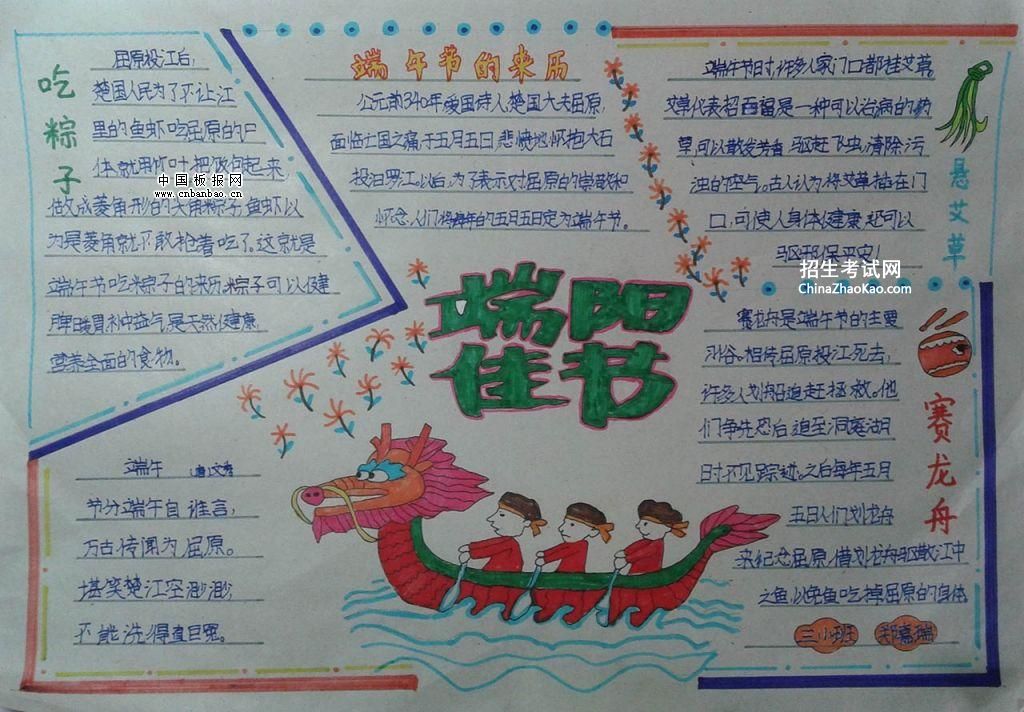 吃粽子
屈原投江后,
楚国人民为了不让江
里的鱼虾吃屈原的尸
体,就用竹叶把饭包起来,
做成菱角形的尖角粽子,鱼虾以
为是菱角就不敢抢着吃了。这就是
端午节吃粽子的来历。粽子可以健
脾暖胃补中益气,是天然健康,
营养全面的食物。
中国板报网
www.cnbanbao.cn
端午节的来历
公元前340年,爱国诗人楚国大夫屈原,
面临亡国之痛于五月五日,悲愤地怀抱大石
投汨罗江。以后,为了表示对屈原的崇敬和
怀念,人们将每年的五月五日定为端午节。
悬艾草
端午节时,许多人家门口都挂艾草,
艾草代表招百福是一种可以治病的药
草,可以散发芳香,驱赶飞虫,清除污
浊的空气。古人认为将艾草插在门
口,可使人身体健康,还可以
驱邪保平安!
招生考试网
ChinaZhaoKao.com
端阳
佳节
赛龙舟
赛龙舟是端午节的主要
习俗。相传屈原投江死去,
许多人划船追赶拯救。他
们争先恐后,追至洞庭湖
时不见踪迹。之后每年五月
五日人们划龙舟
来纪念屈原,借划龙舟驱散江中
之鱼,以免鱼吃掉屈原的身体
三小班 郑嘉瑞
端午 (唐)文秀
节分端午自谁言,
万古传闻为屈原。
堪笑楚江空渺渺,
不能洗得直臣冤。